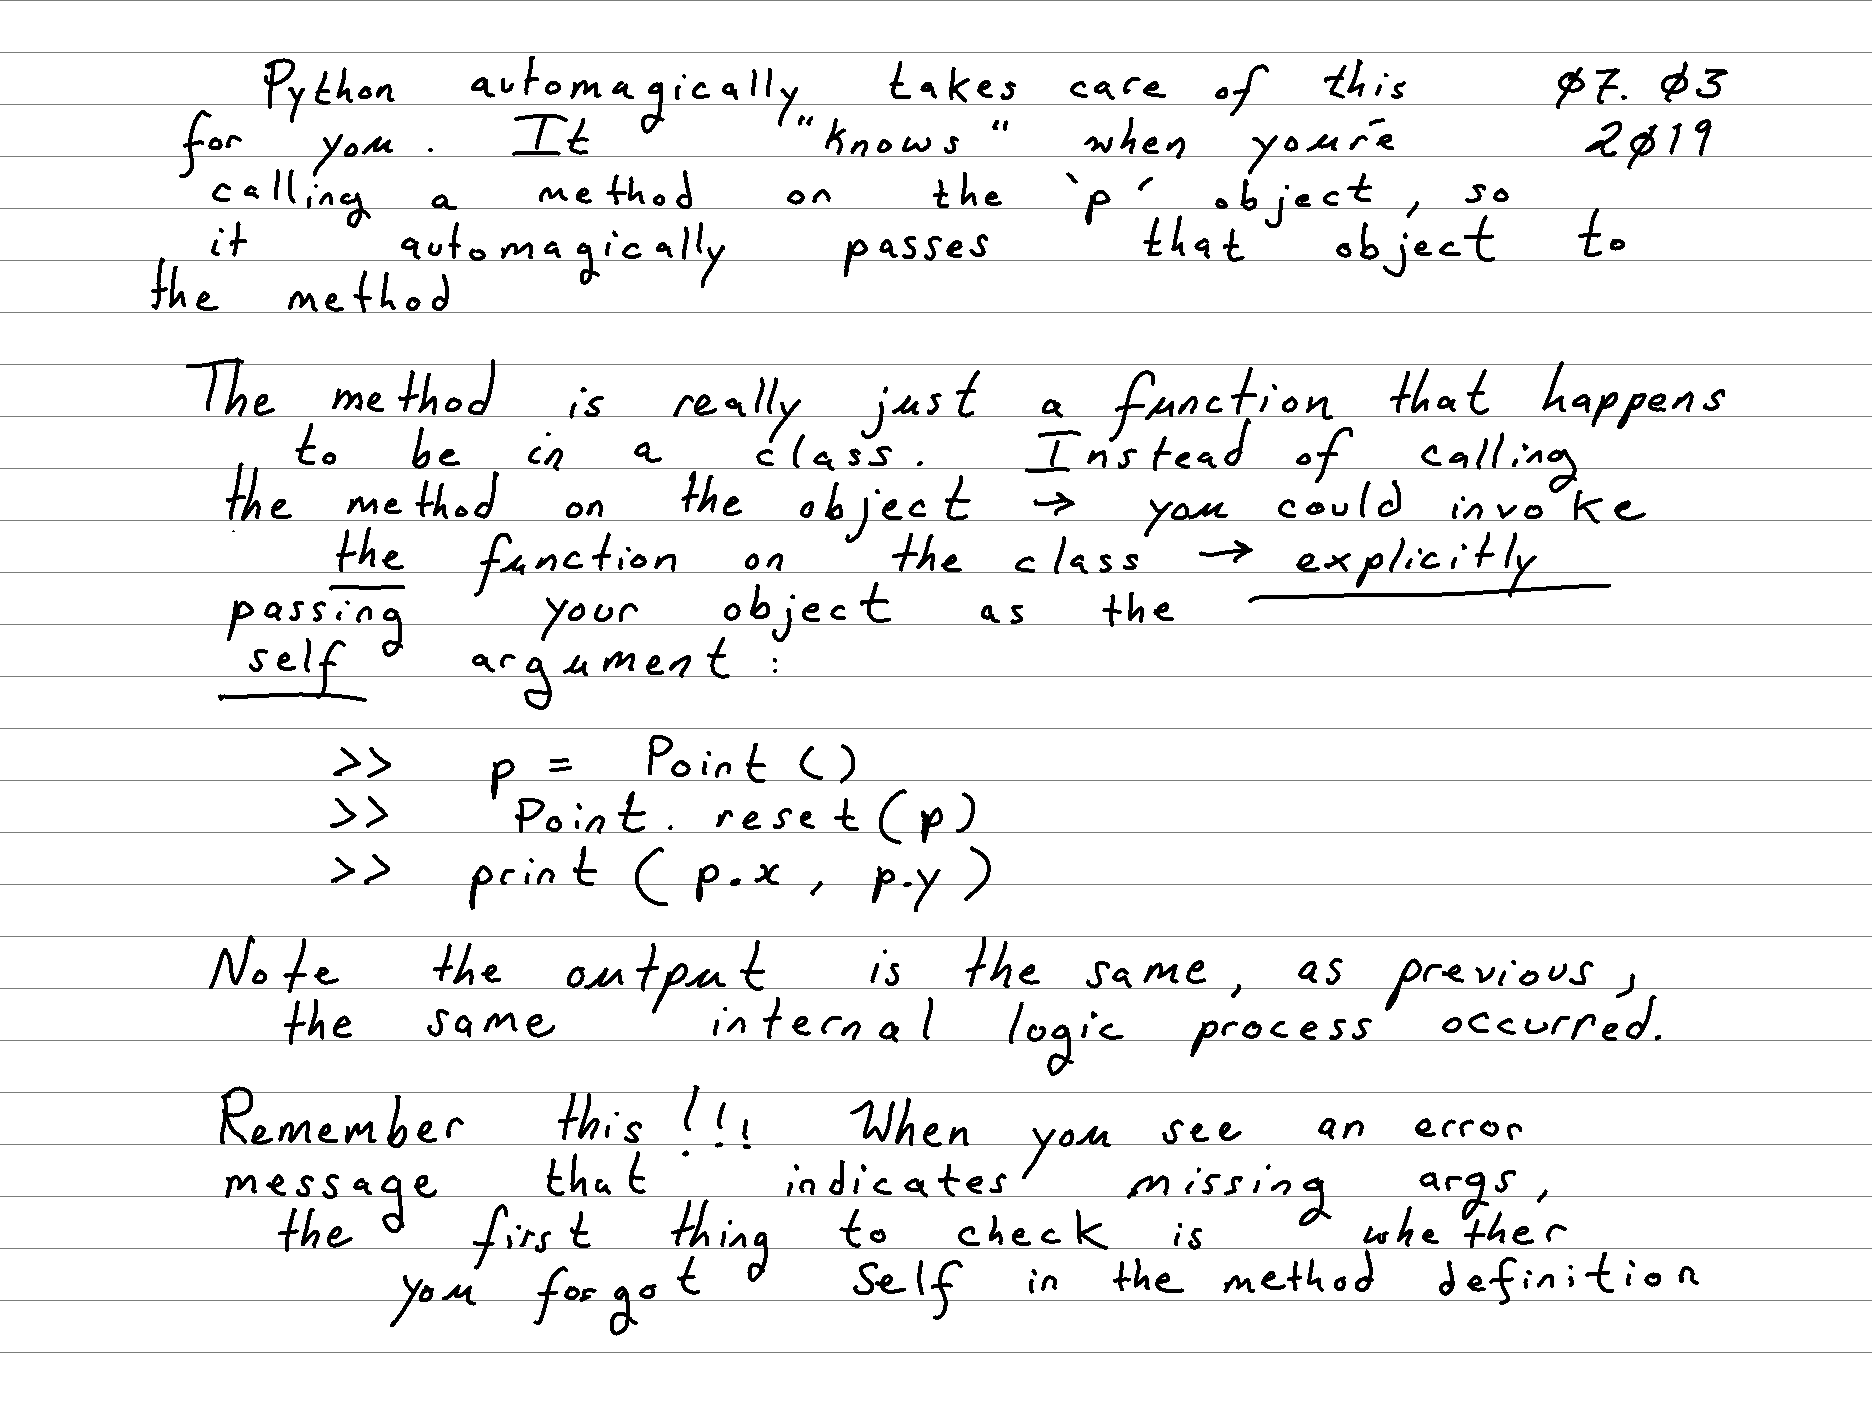 Python automagically takes care of this 07. 03
for you. It "knows" when you're 2019
calling a method on the `p´ object, so
it automagically passes that object to
the method
The method is really just a function that happens
to be in a class. Instead of calling
the method on the object → you could invoke
the function on the class → explicitly
passing your object as the
self argument :
>> p = Point ()
>> Point. reset (p)
>> print ( p.x , p.y )
Note the output is the same, as previous,
the same internal logic process occurred.
Remember this!!! When you see an error
message that indicates missing args,
the first thing to check is whether
you forgot Self in the method definition